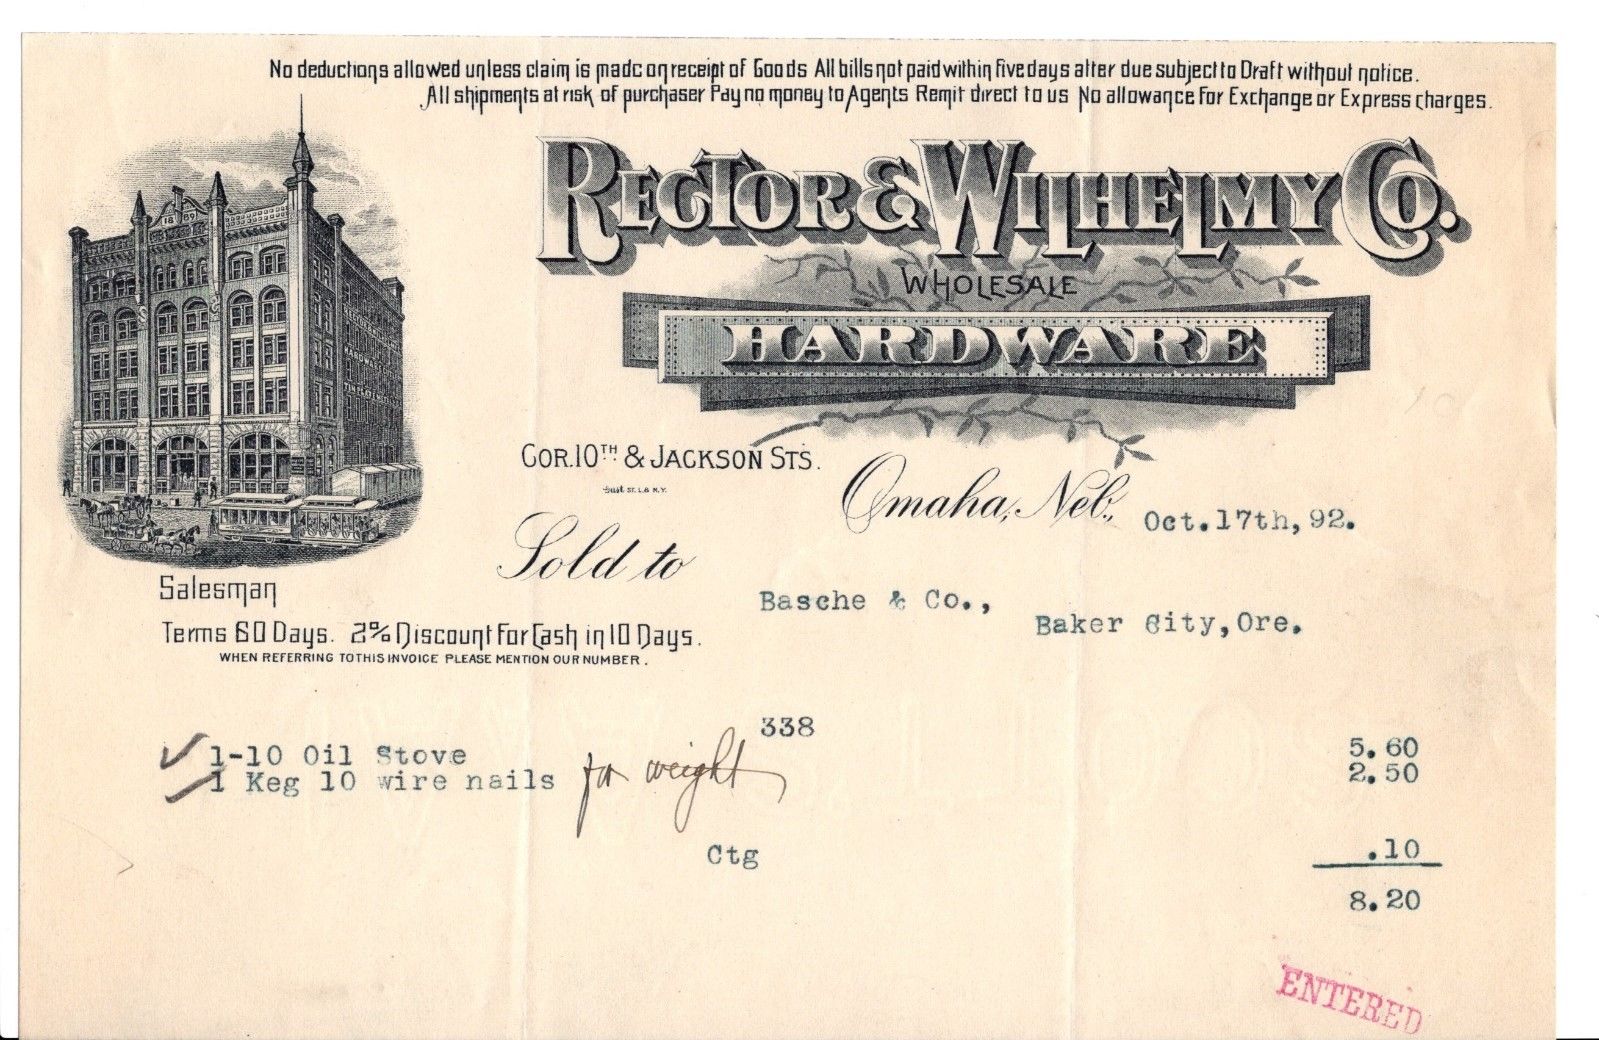 No deductions allowed unless claim is made on receipt of Goods All bills not paid within five days after due subject to Draft without notice.
All shipments at risk of purchaser Pay no money to Agents Remit direct to us No allowance for Exchange or Express charges.
RECTOR & WILHELMY CO.
WHOLESALE
HARDWARE
1889
HARDWARE
COR. 10TH & JACKSON STS.
Omaha, Neb., Oct.17th,92.
Sold to
Basche & Co.,
Baker City,Ore.
Salesman
Terms 60 Days. 2% Discount for Cash in 10 Days.
WHEN REFERRING TO THIS INVOICE PLEASE MENTION OUR NUMBER.
338
1-10 Oil Stove 5.60
1 Keg 10 wire nails for weight 2.50
Ctg .10
8.20
ENTERED